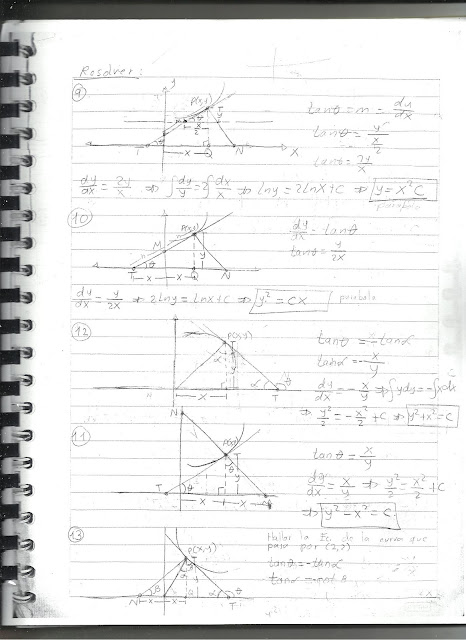 Resolver:
9
y
P(x,y)
θ
y
x/2
T
x
Q
N
X
tanθ = m = dy/dx
tanθ = y/(x/2)
tanθ = 2y/x
dy/dx = 2y/x ⇒ ∫dy/y = 2∫dx/x ⇒ lny = 2lnx+C ⇒ y = x²C
parabola
10
P(x,y)
M
y
T
θ
x
Q
N
dy/dx = tanθ
tanθ = y/2x
dy/dx = y/2x ⇒ 2lny = lnx+C ⇒ y² = CX
parabola
12
P(x,y)
α
y
x
α
θ
T
tanθ = -tanα
tanα = x/y
dy/dx = -x/y ⇒ ∫ydy = -∫xdx
⇒ y²/2 = -x²/2 + C ⇒ y²+x² = C
11
N
P(x,y)
θ
y
T
θ
x
x
tanθ = x/y
dy/dx = x/y ⇒ y²/2 = x²/2 + C
⇒ y² - x² = C
13
Hallar la Ec. de la curva que
pasa por (2,3)
P(x,y)
N
β
x
x
α
θ
T
tanθ = -tanα